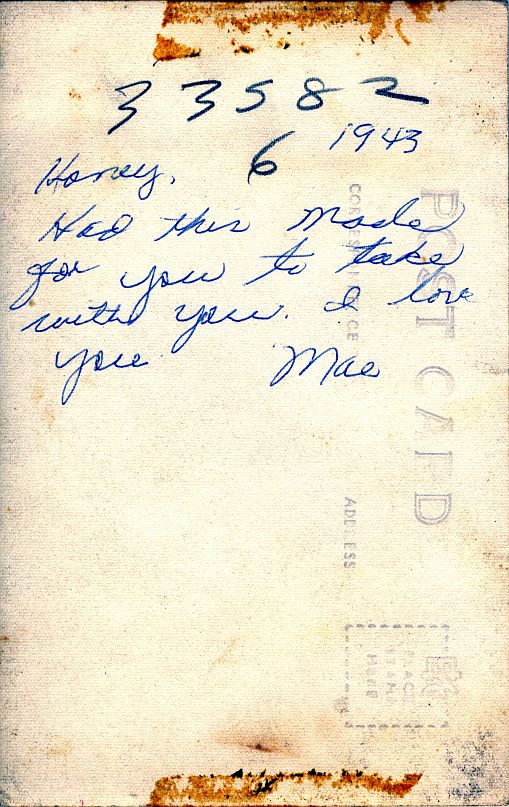 33582
6
1943
Honey,
Had this made
for you to take
with you. I love
you
Mae
POST CARD
CORRESPONDENCE
ADDRESS
PLACE
STAMP
HERE